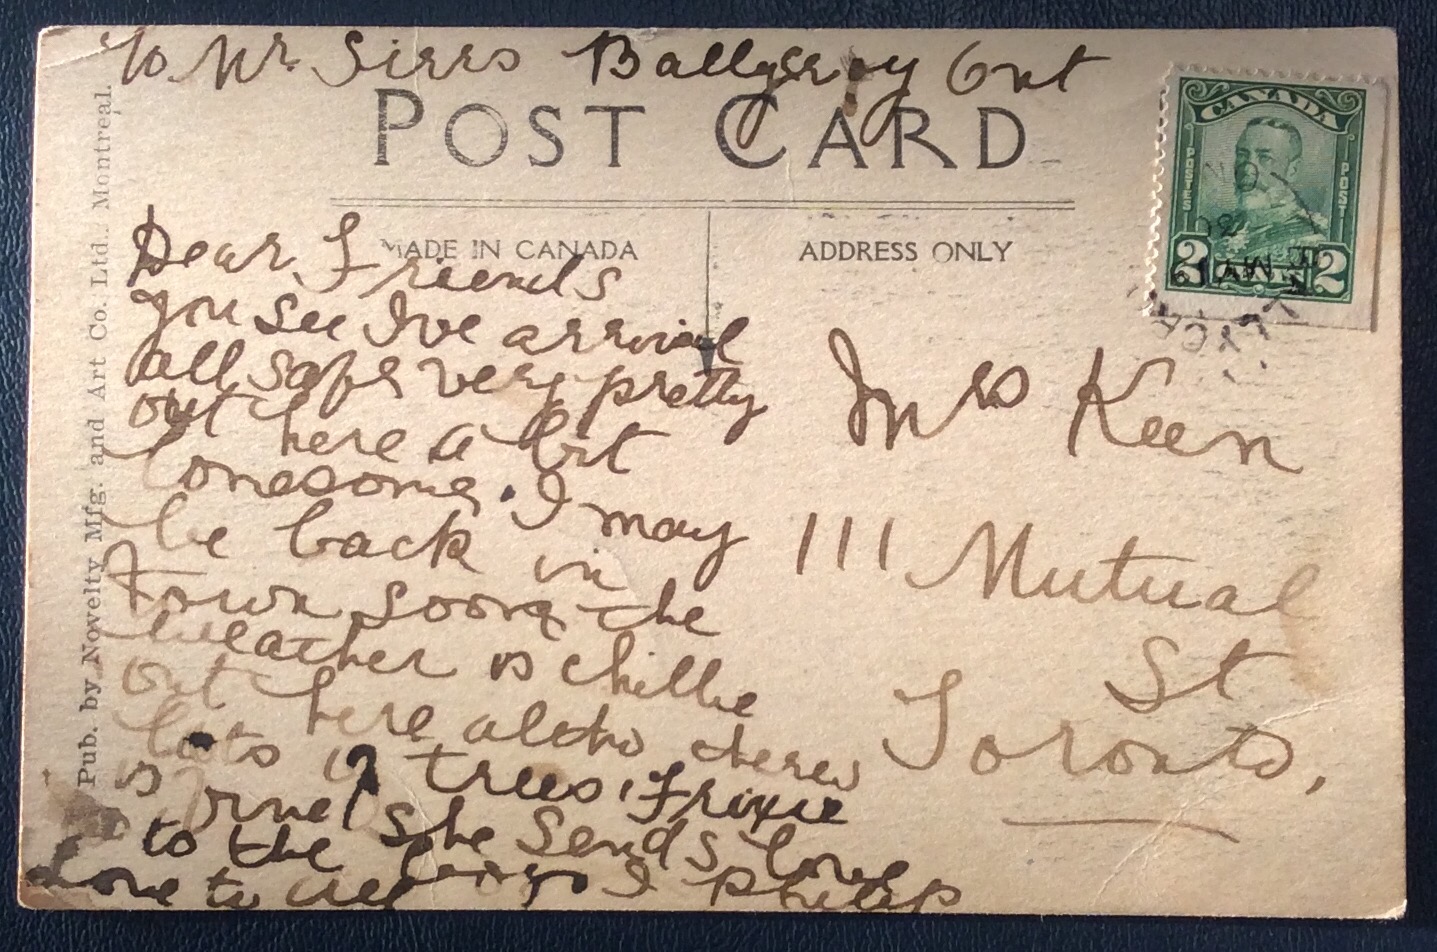 To Mr. Sirrs Ballycroy Ont
POST CARD
MADE IN CANADA
ADDRESS ONLY
Pub. by Novelty Mfg. and Art Co. Ltd., Montreal.
CANADA
POSTES
POST
2 2
Dear Friends
you see Ive arrived
all safe very pretty
out here a bit
lonesome. I may
be back in
town soon the
weather is chillie
out here altho theres
lots of trees. Trixie
is fine she sends love
to the boys
Love to all Philip
Mrs Keen
111 Mutual
St
Toronto,